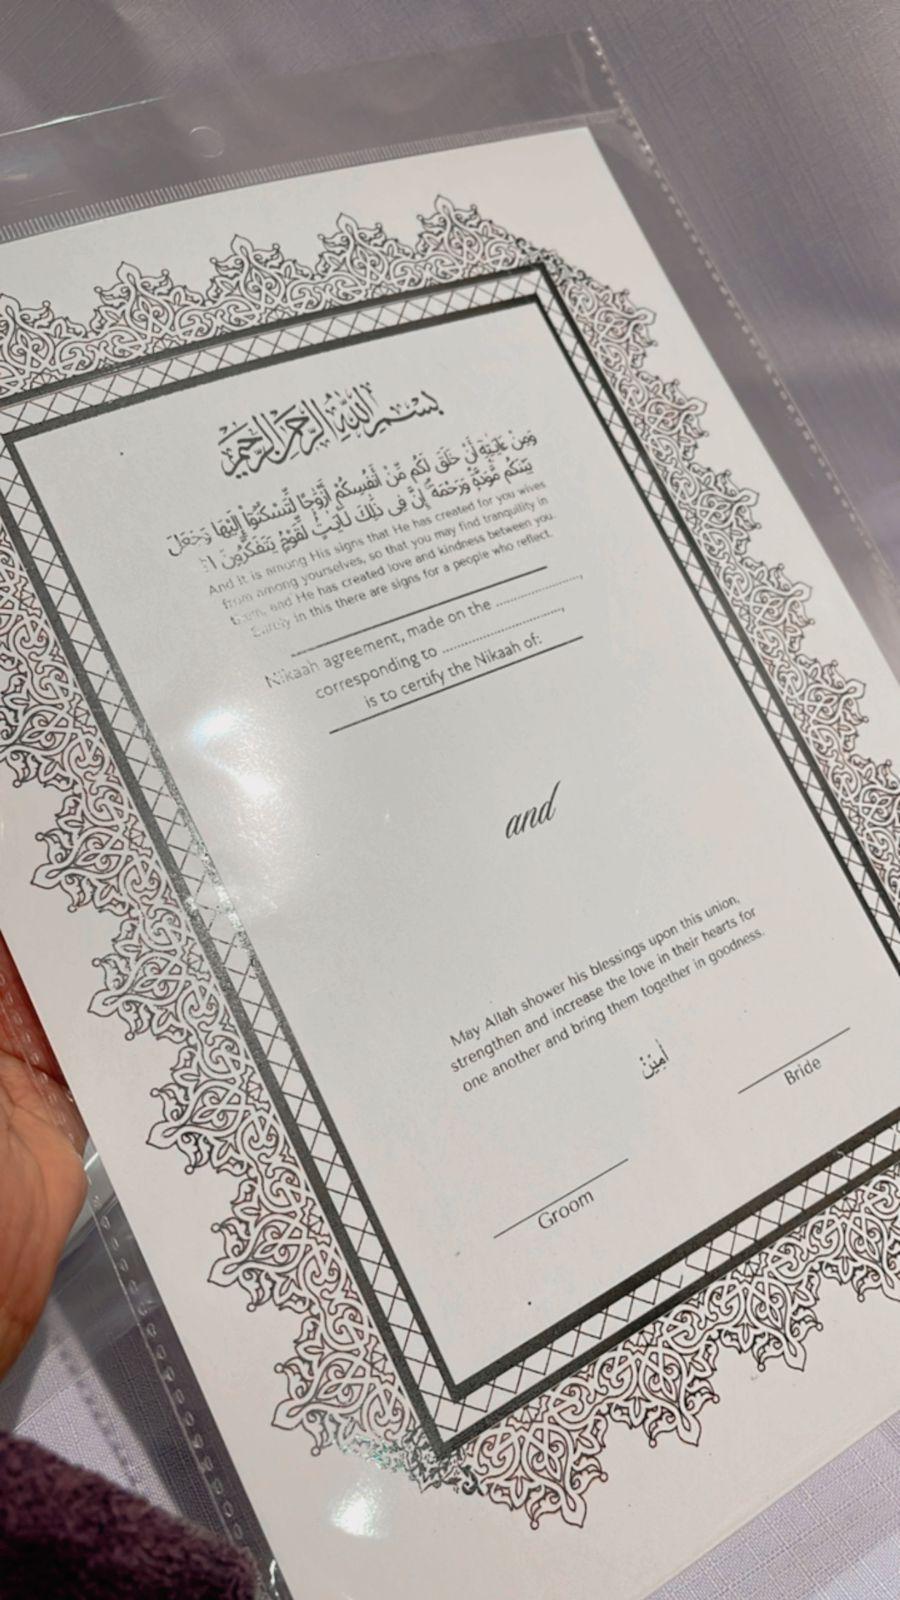 بسم الله الرحمن الرحيم
وَمِنْ ءَايَـٰتِهِۦٓ أَنْ خَلَقَ لَكُم مِّنْ أَنفُسِكُمْ أَزْوَٰجًا لِّتَسْكُنُوٓا۟ إِلَيْهَا وَجَعَلَ
بَيْنَكُم مَّوَدَّةً وَرَحْمَةً إِنَّ فِى ذَٰلِكَ لَـَٔايَـٰتٍ لِّقَوْمٍ يَتَفَكَّرُونَ
And it is among His signs that He has created for you wives
from among yourselves, so that you may find tranquility in
them, and He has created love and kindness between you.
Surely in this there are signs for a people who reflect.
Nikaah agreement, made on the ....................,
corresponding to ............................,
is to certify the Nikaah of:
and
May Allah shower his blessings upon this union,
strengthen and increase the love in their hearts for
one another and bring them together in goodness.
اٰمِيْن
Groom
Bride